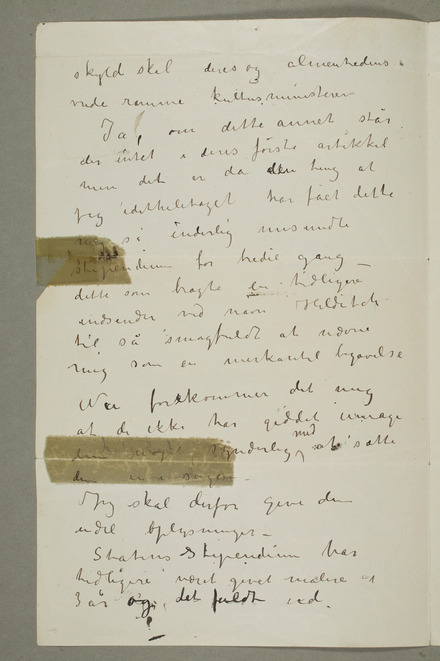 skyld skal deres og almenhedens
vrede ramme kultusministeren
Ja, om dette annet står
der intet i deres første artikkel
men det er da den ting at
jeg i det hele taget har fået dette
så inderlig misundte
stipendium for tredie gang –
dette som bragte en tidligere
indsender ved navn Hilditch
til så smagfuldt at nævne
mig som en merkantil begavelse
Nu forekommer det mig
at de ikke har giddet umage
dem synderlig med at sætte
dem ind i sagen
Jeg skal derfor give dem
endel oplysninger –
Statens Stipendium har
tidligere været givet malere i
3 år og det fuldt ud.